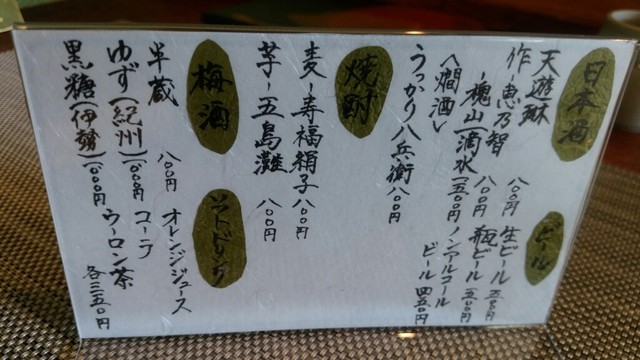 日本酒
天遊琳
作ー恵乃智 八〇〇円
槐山一滴水 八〇〇円
〈燗酒〉 一五〇〇円
うっかり八兵衛 八〇〇円
焼酎
麦ー寿福絹子 八〇〇円
芋ー五島灘 八〇〇円
梅酒
半蔵 八〇〇円
ゆず(紀州) 一〇〇〇円
黒糖(伊勢) 一〇〇〇円
ビール
生ビール 五五〇円
瓶ビール 五〇〇円
ノンアルコール
ビール 四五〇円
ソフトドリンク
オレンジジュース
コーラ
ウーロン茶
各三五〇円